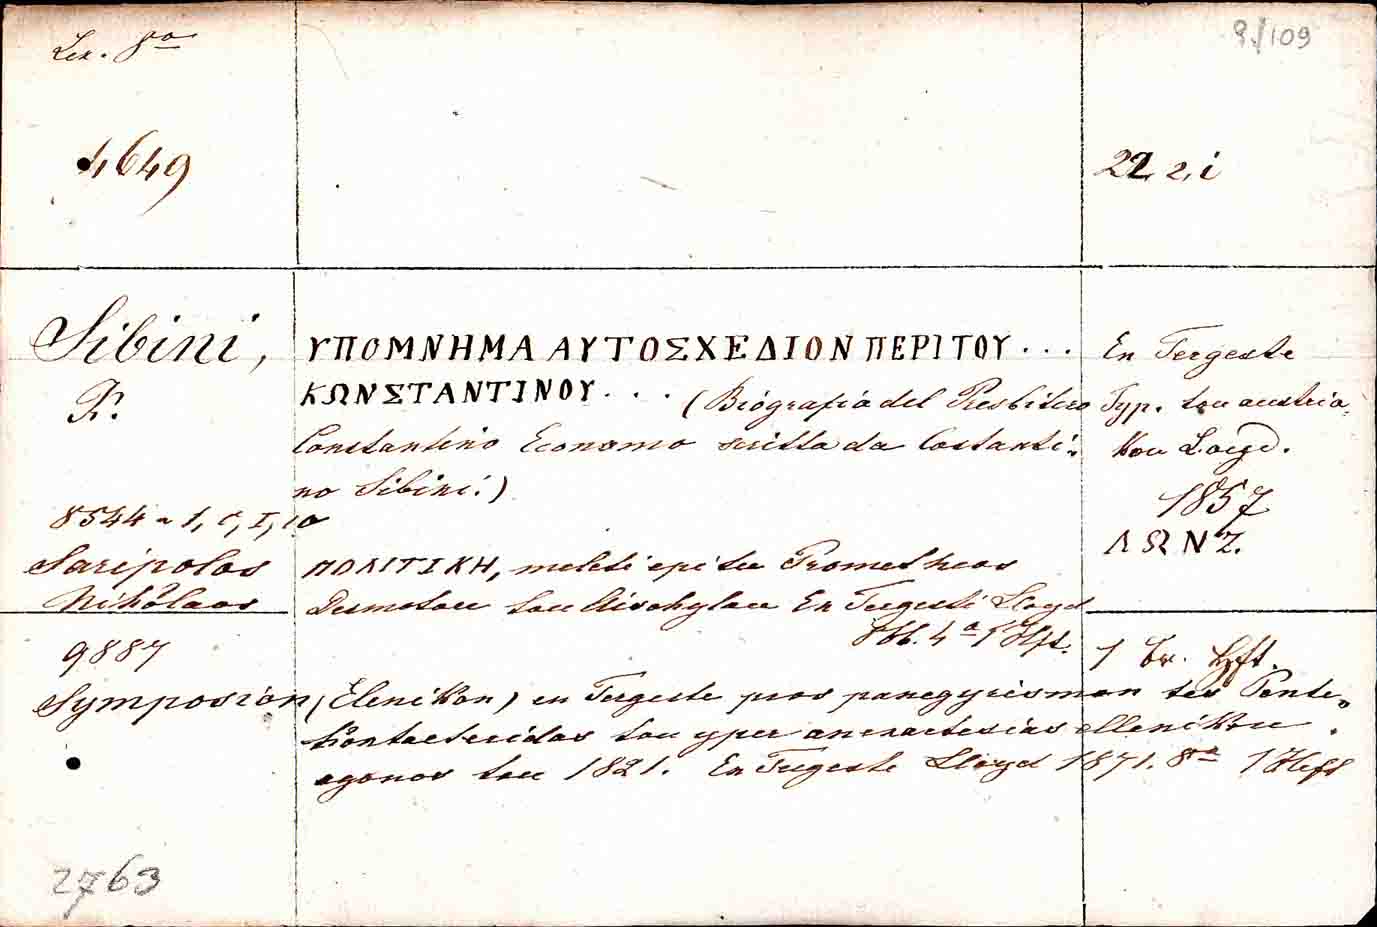 Lex. 8o
9/109
4649
22, 2, i
Sibini,
K.
ΥΠΟΜΝΗΜΑ ΑΥΤΟΣΧΕΔΙΟΝ ΠΕΡΙ ΤΟΥ . . .
ΚΩΝΣΤΑΝΤΙΝΟΥ . . . (Biografia del Presbitero
Constantino Economo scritta da Costanti-
no Sibini.)
En Tergeste
Typ. tou austria-
kou Loyd.
1857
ΛΩΝΖ.
8544 1, I, 10
Saripolos
Nikolaos
ΠΟΛΙΤΙΚΗ, meleti epi tu Prometheos
Desmotou tou Aischylou En Tergesti Lloyd
4a 1 Hft.
9887
1 br. Hft.
Symposion, (Elenikon) en Tergeste pros panegyrismon tes Pente-
kontaeteridos tou yper anexartesias ellenikou
agonos tou 1821. En Tergeste Lloyd 1871. 8o 1 Heft
2763